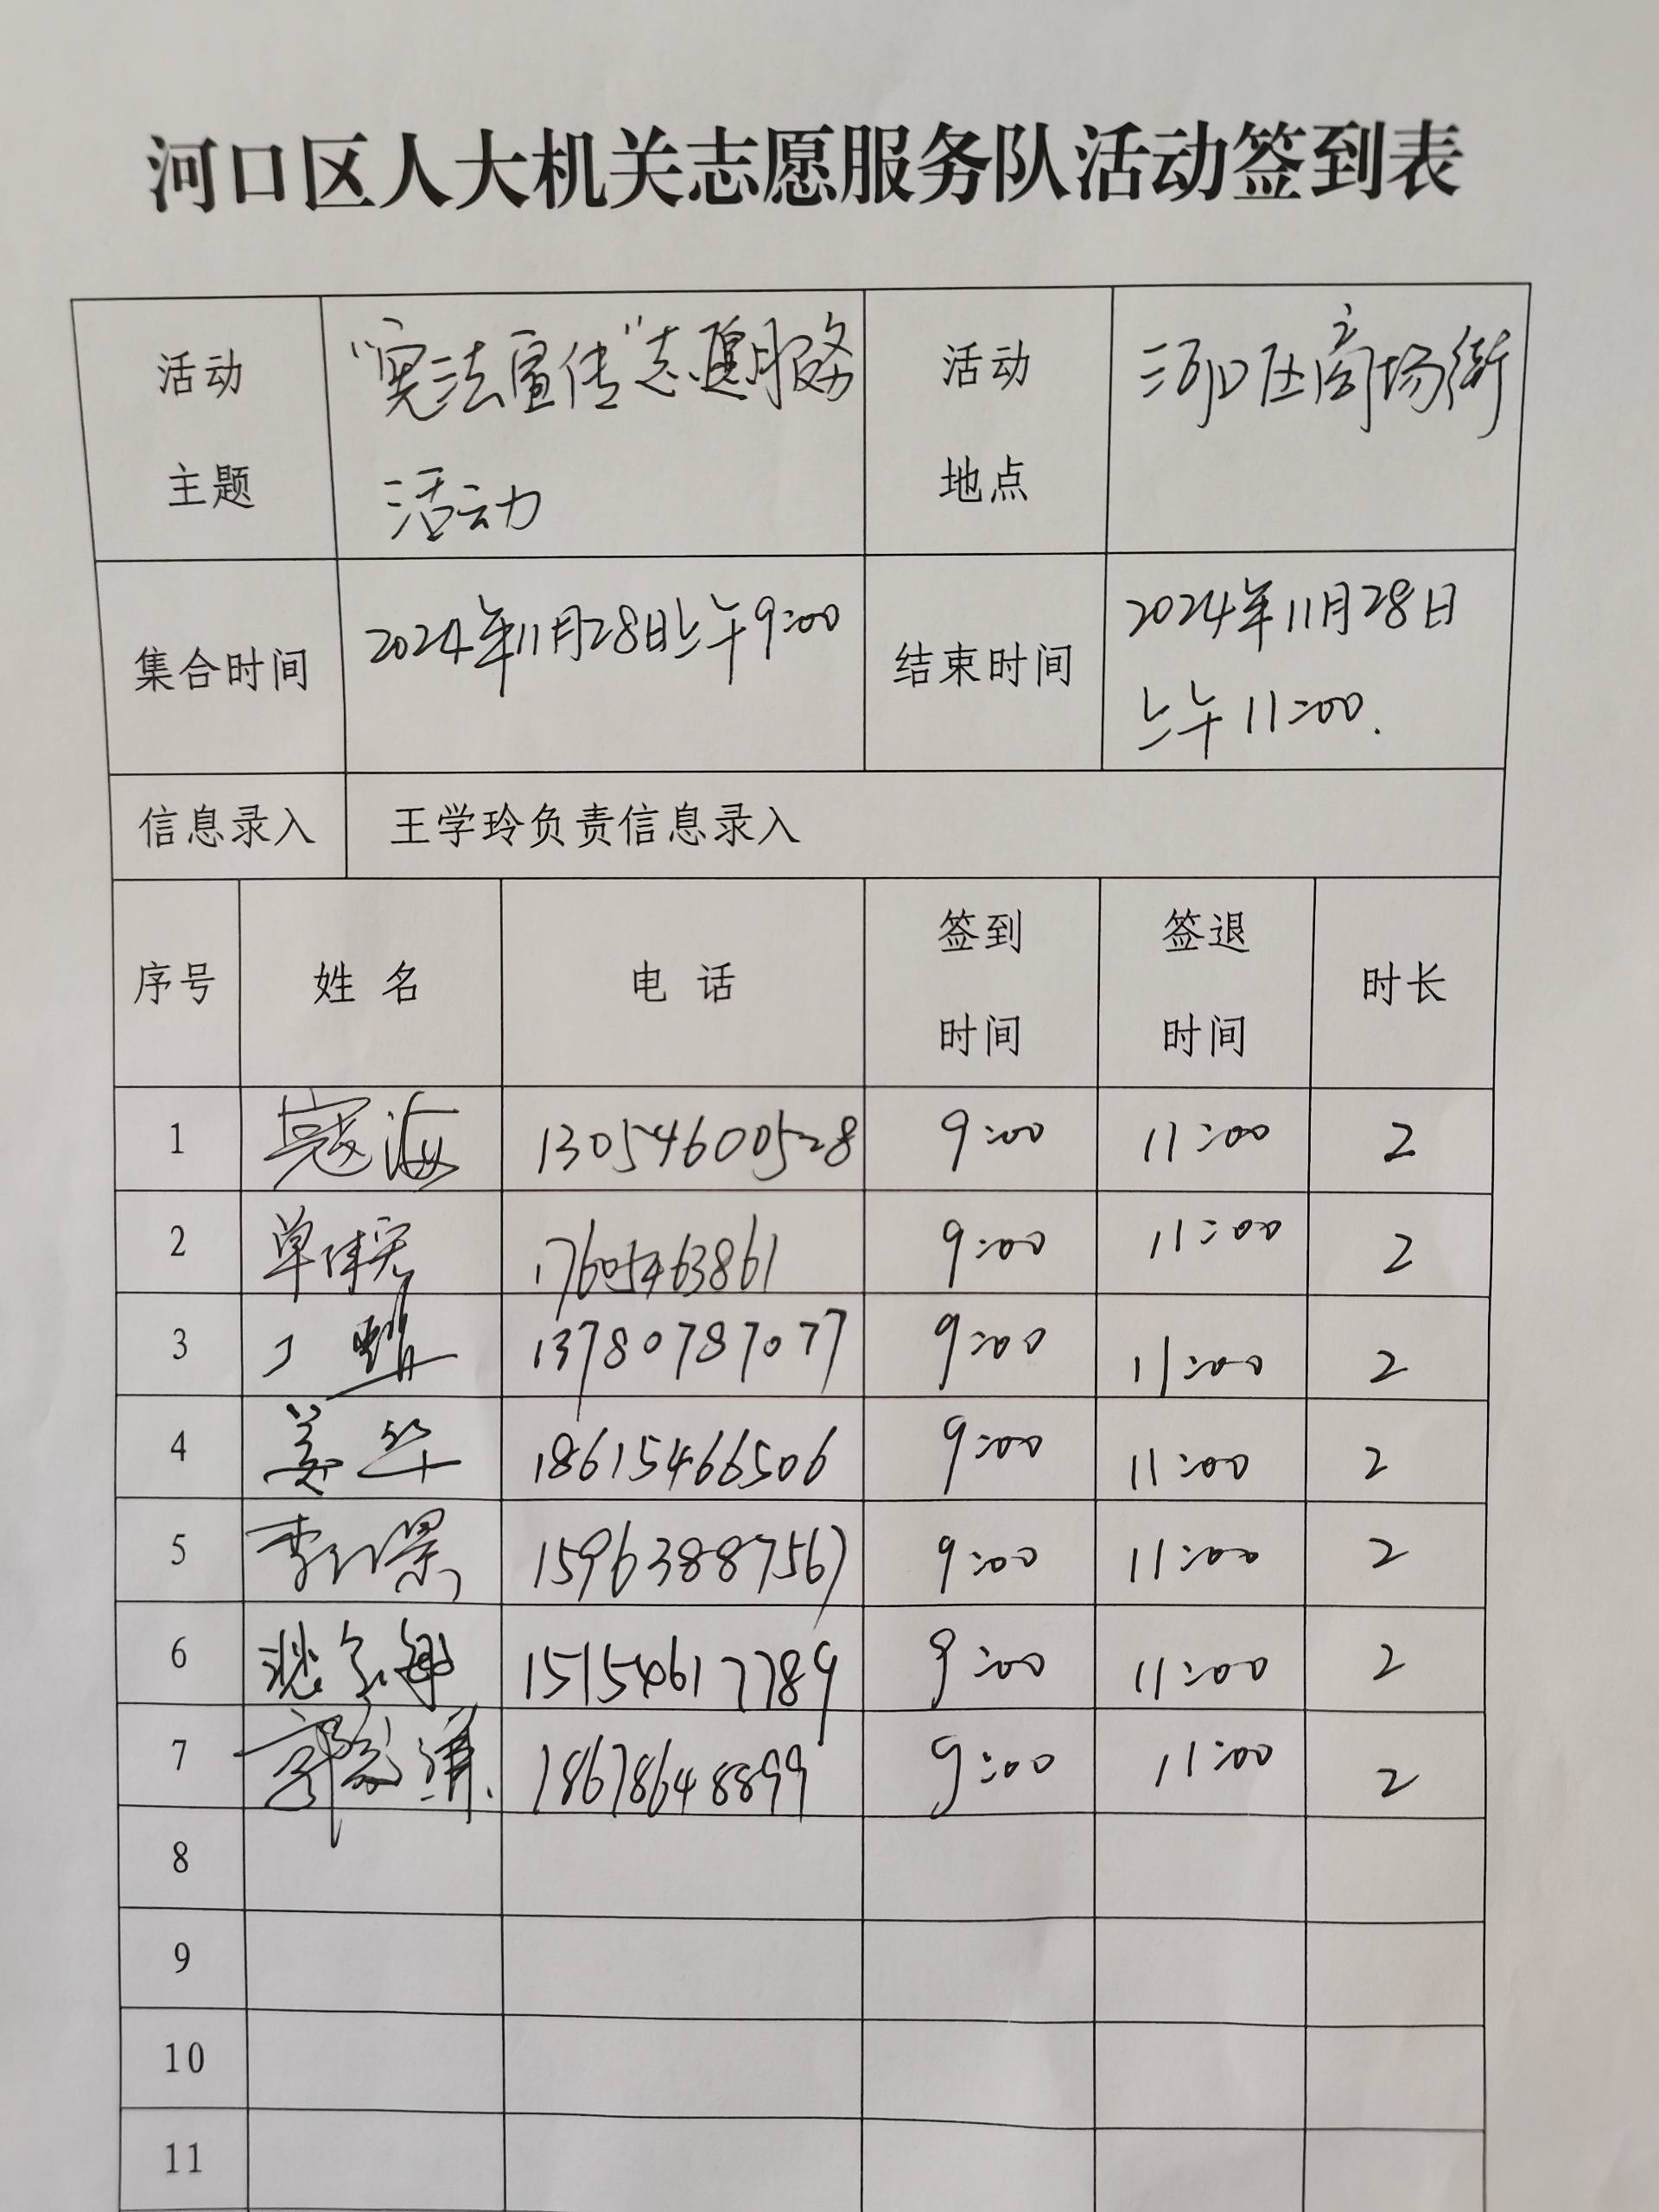 河口区人大机关志愿服务队活动签到表
活动主题 "宪法宣传"志愿服务活动 活动地点 河口区商场街
集合时间 2024年11月28日上午9:00 结束时间 2024年11月28日上午11:00.
信息录入 王学玲负责信息录入
序号 姓名 电话 签到时间 签退时间 时长
1 寇海 13054600528 9:00 11:00 2
2 单 17605463861 9:00 11:00 2
3 丁 13780787077 9:00 11:00 2
4 姜华 18615466506 9:00 11:00 2
5 李 15963887567 9:00 11:00 2
6 15154617789 9:00 11:00 2
7 18678648899 9:00 11:00 2
8
9
10
11